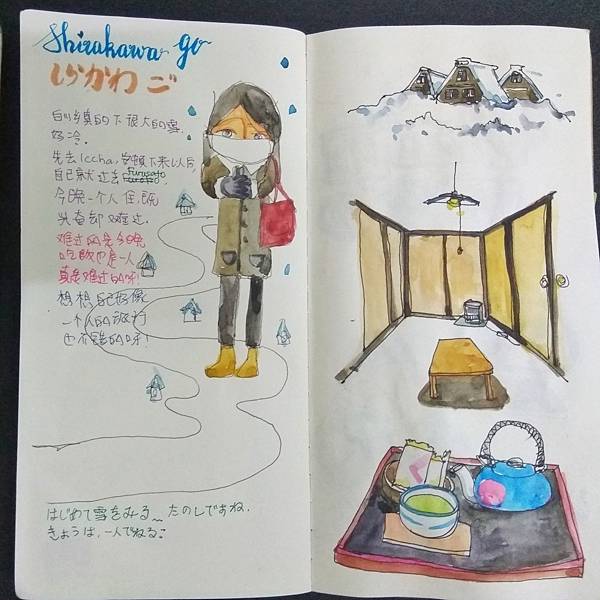 Shirakawa go
しらかわ ご
白川乡真的下很大的雪.
好冷.
先去Iccha,安顿下来以后,
furusato
自己就过去
今晚一个人住,既
兴奋却难过.
难过的是今晚
吃饭也是一人
真是难过的呀!
想想自己好像
一个人的旅行
也不错的呀!
はじめて雪をみる~ たのしですね.
きょうは、一人でねる